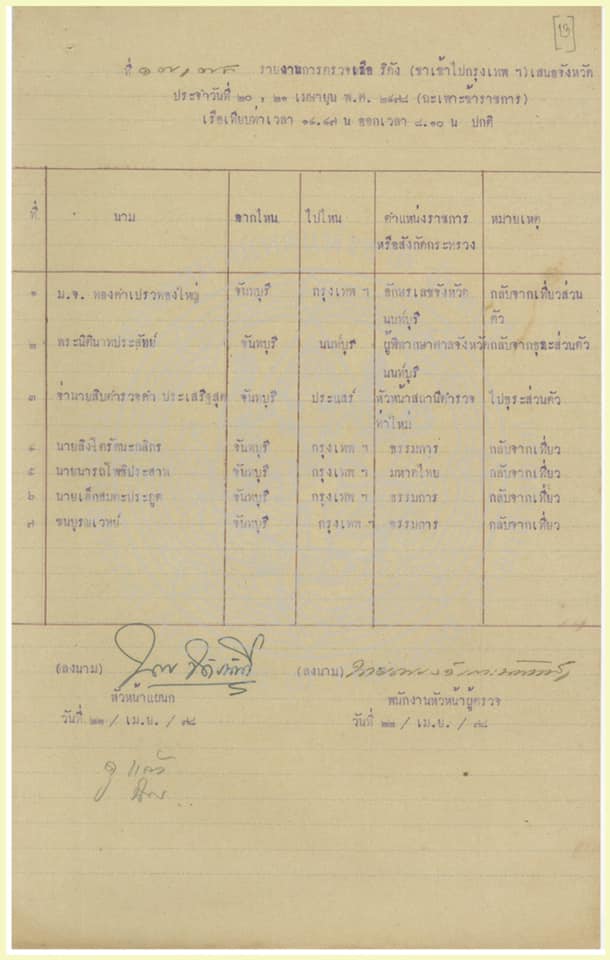 [13]
ที่ ๑๗/๗๘ รายงานการตรวจเรือ ริดัง (ขาเข้าไปกรุงเทพ ฯ) เสนอจังหวัด
ประจำวันที่ ๒๐ , ๒๑ เมษายน พ.ศ. ๒๔๗๘ (ฉะเพาะข้าราชการ)
เรือเทียบท่าเวลา ๑๔.๔๗ น ออกเวลา ๘.๑๐ น ปกติ
ที่ นาม จากไหน ไปไหน ตำแหน่งราชการ หมายเหตุ
หรือสังกัดกระทรวง
๑ ม.จ. ทองคำเปรวทองใหญ่ จันทบุรี กรุงเทพ ฯ อักษรเลขจังหวัด กลับจากเที่ยวส่วน
นนท์บุรี ตัว
๒ พระนิตินาทประสัทย์ จันทบุรี นนท์บุรี ผู้พิพากษาศาลจังหวัด กลับจากธุระส่วนตัว
นนท์บุรี
๓ จ่านายสิบตำรวจคำ ประเสริฐสุด จันทบุรี ประแสร์ หัวหน้าสถานีตำรวจ ไปธุระส่วนตัว
ท่าใหม่
๔ จันทบุรี กรุงเทพ ฯ ธรรมการ กลับจากเที่ยว
๕ นายนารถโพธิประสาท จันทบุรี กรุงเทพ ฯ มหาดไทย กลับจากเที่ยว
๖ จันทบุรี กรุงเทพ ฯ ธรรมการ กลับจากเที่ยว
๗ ขุนบูรณเวทย์ จันทบุรี กรุงเทพ ฯ ธรรมการ กลับจากเที่ยว
(ลงนาม) (ลงนาม)
หัวหน้าแผนก พนักงานหัวหน้าผู้ตรวจ
วันที่ ๒๒ / เม.ย. / ๗๘ วันที่ ๒๒ / เม.ย. / ๗๘
ดูแล้ว